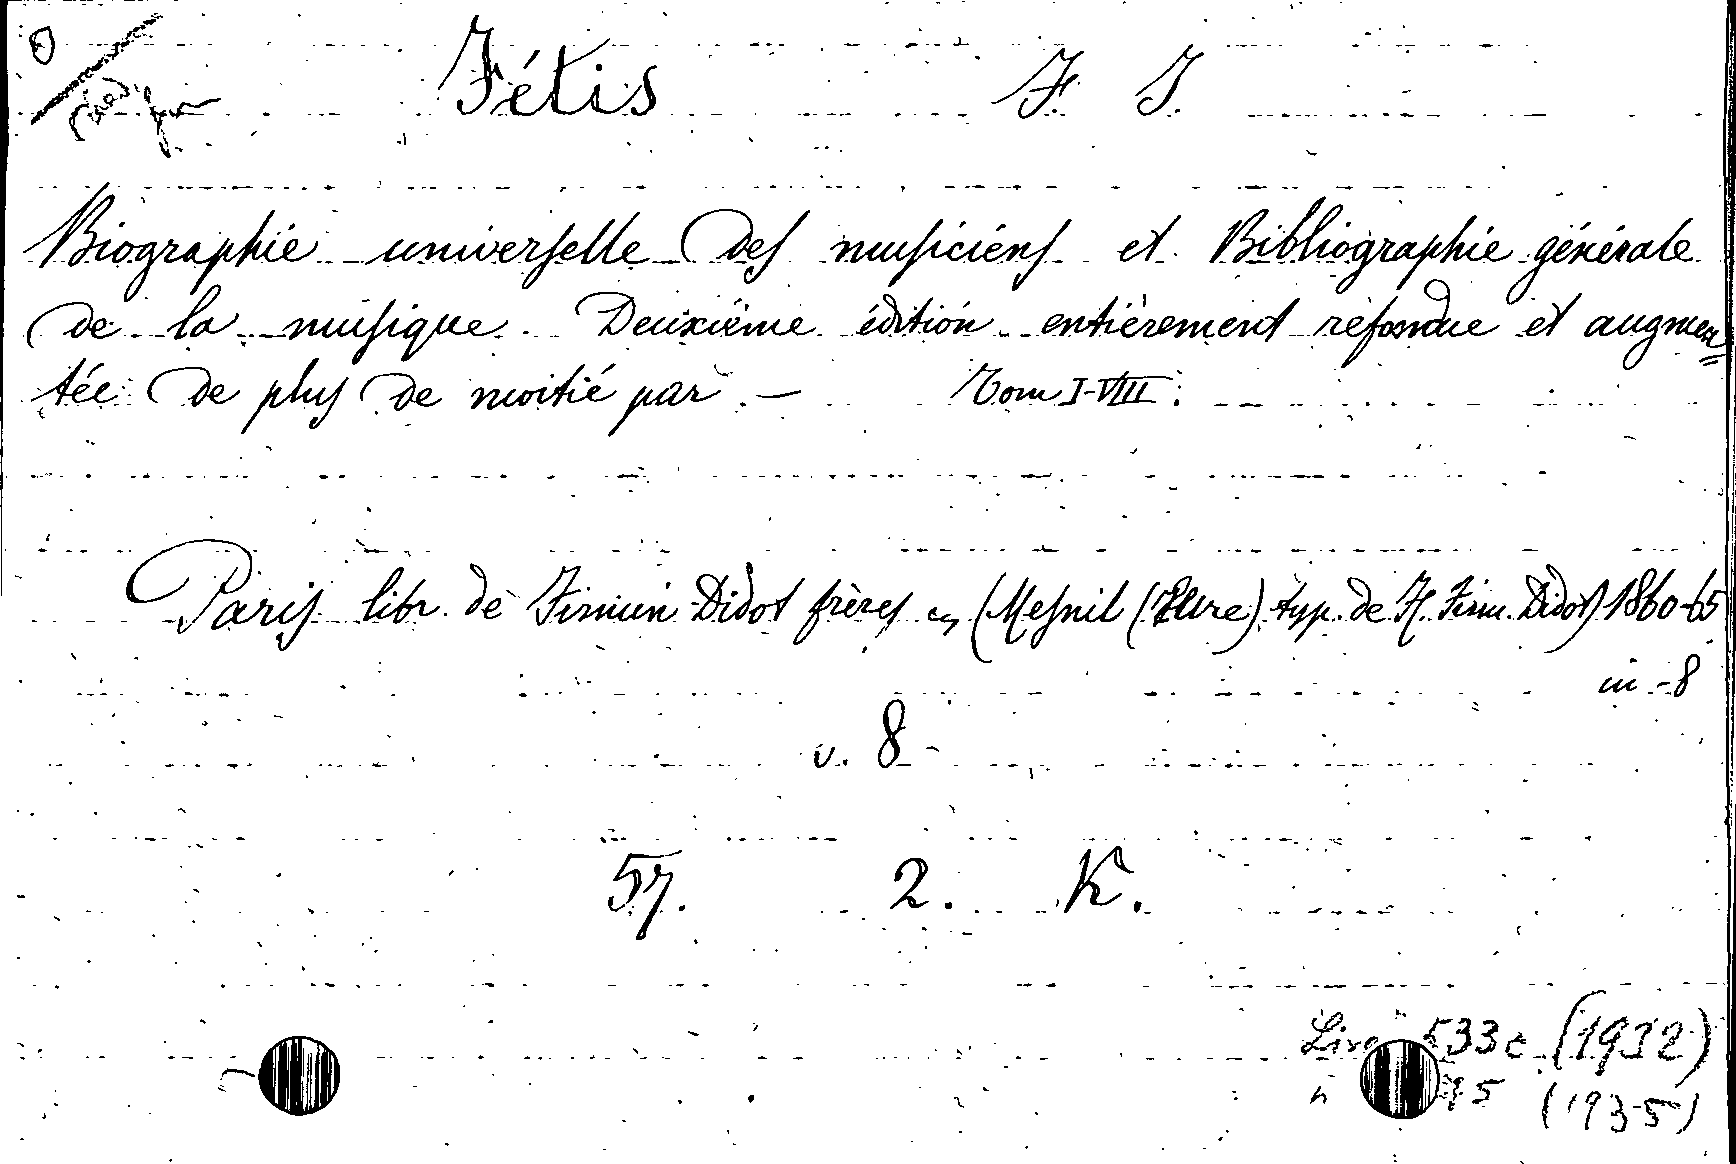 Fétis F. J.
Biographie universelle des musiciens et Bibliographie générale
de la musique. Deuxième édition entièrement refondue et augmen=
tée de plus de moitié par — Tom I-VIII.
Paris libr. de Firmin Didot frères (Mesnil (Eure) typ. de H. Firm. Didot) 1860-65
in-8
v. 8
57. 2. K.
533c (1932)
95 (1935)